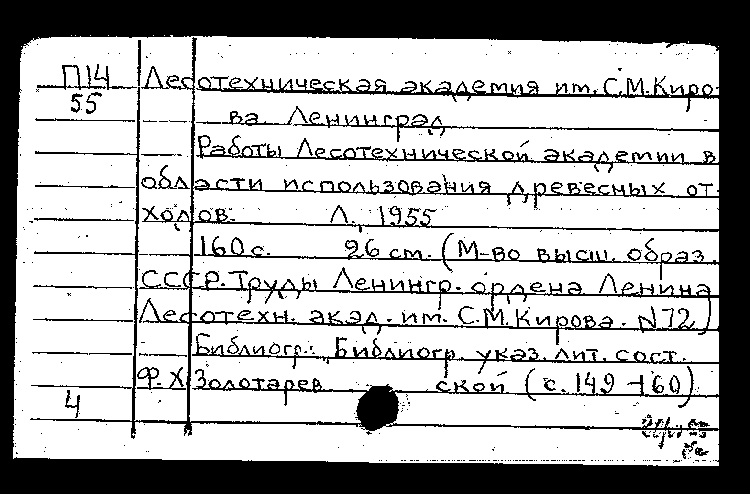 П14 Лесотехническая академия им. С.М.Киро-
55 ва Ленинград
Работы Лесотехнической академии в
области использования древесных от-
ходов. Л., 1955
160 с. 26 см. (М-во высш. образ.
СССР. Труды Ленингр. ордена Ленина
Лесотехн. акад. им. С.М.Кирова. N72)
Библиогр.: „Библиогр. указ. лит. сост.
Ф.Х Золотарев ской (с. 149-160)
4